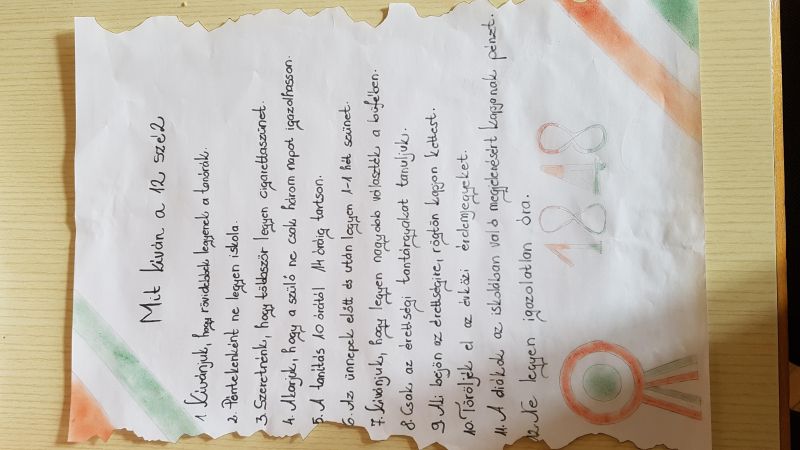 Mit kíván a 12 szé2
1. Kívánjuk, hogy rövidebbek legyenek a tanórák.
2. Péntekenként ne legyen iskola.
3. Szeretnénk, hogy többször legyen cigarettaszünet.
4. Akarjuk, hogy a szülő ne csak három napot igazolhasson.
5. A tanítás 10 órától 14 óráig tartson.
6. Az ünnepek előtt és után legyen 1-1 hét szünet.
7. Kívánjuk, hogy legyen nagyobb választék a büfében.
8. Csak az érettségi tantárgyakat tanuljuk.
9. Aki bejön az érettségire, rögtön kapjon kettest.
10. Töröljék el az évközi érdemjegyeket.
11. A diákok az iskolában való megjelenésért kapjanak pénzt.
12. Ne legyen igazolatlan óra.
1848